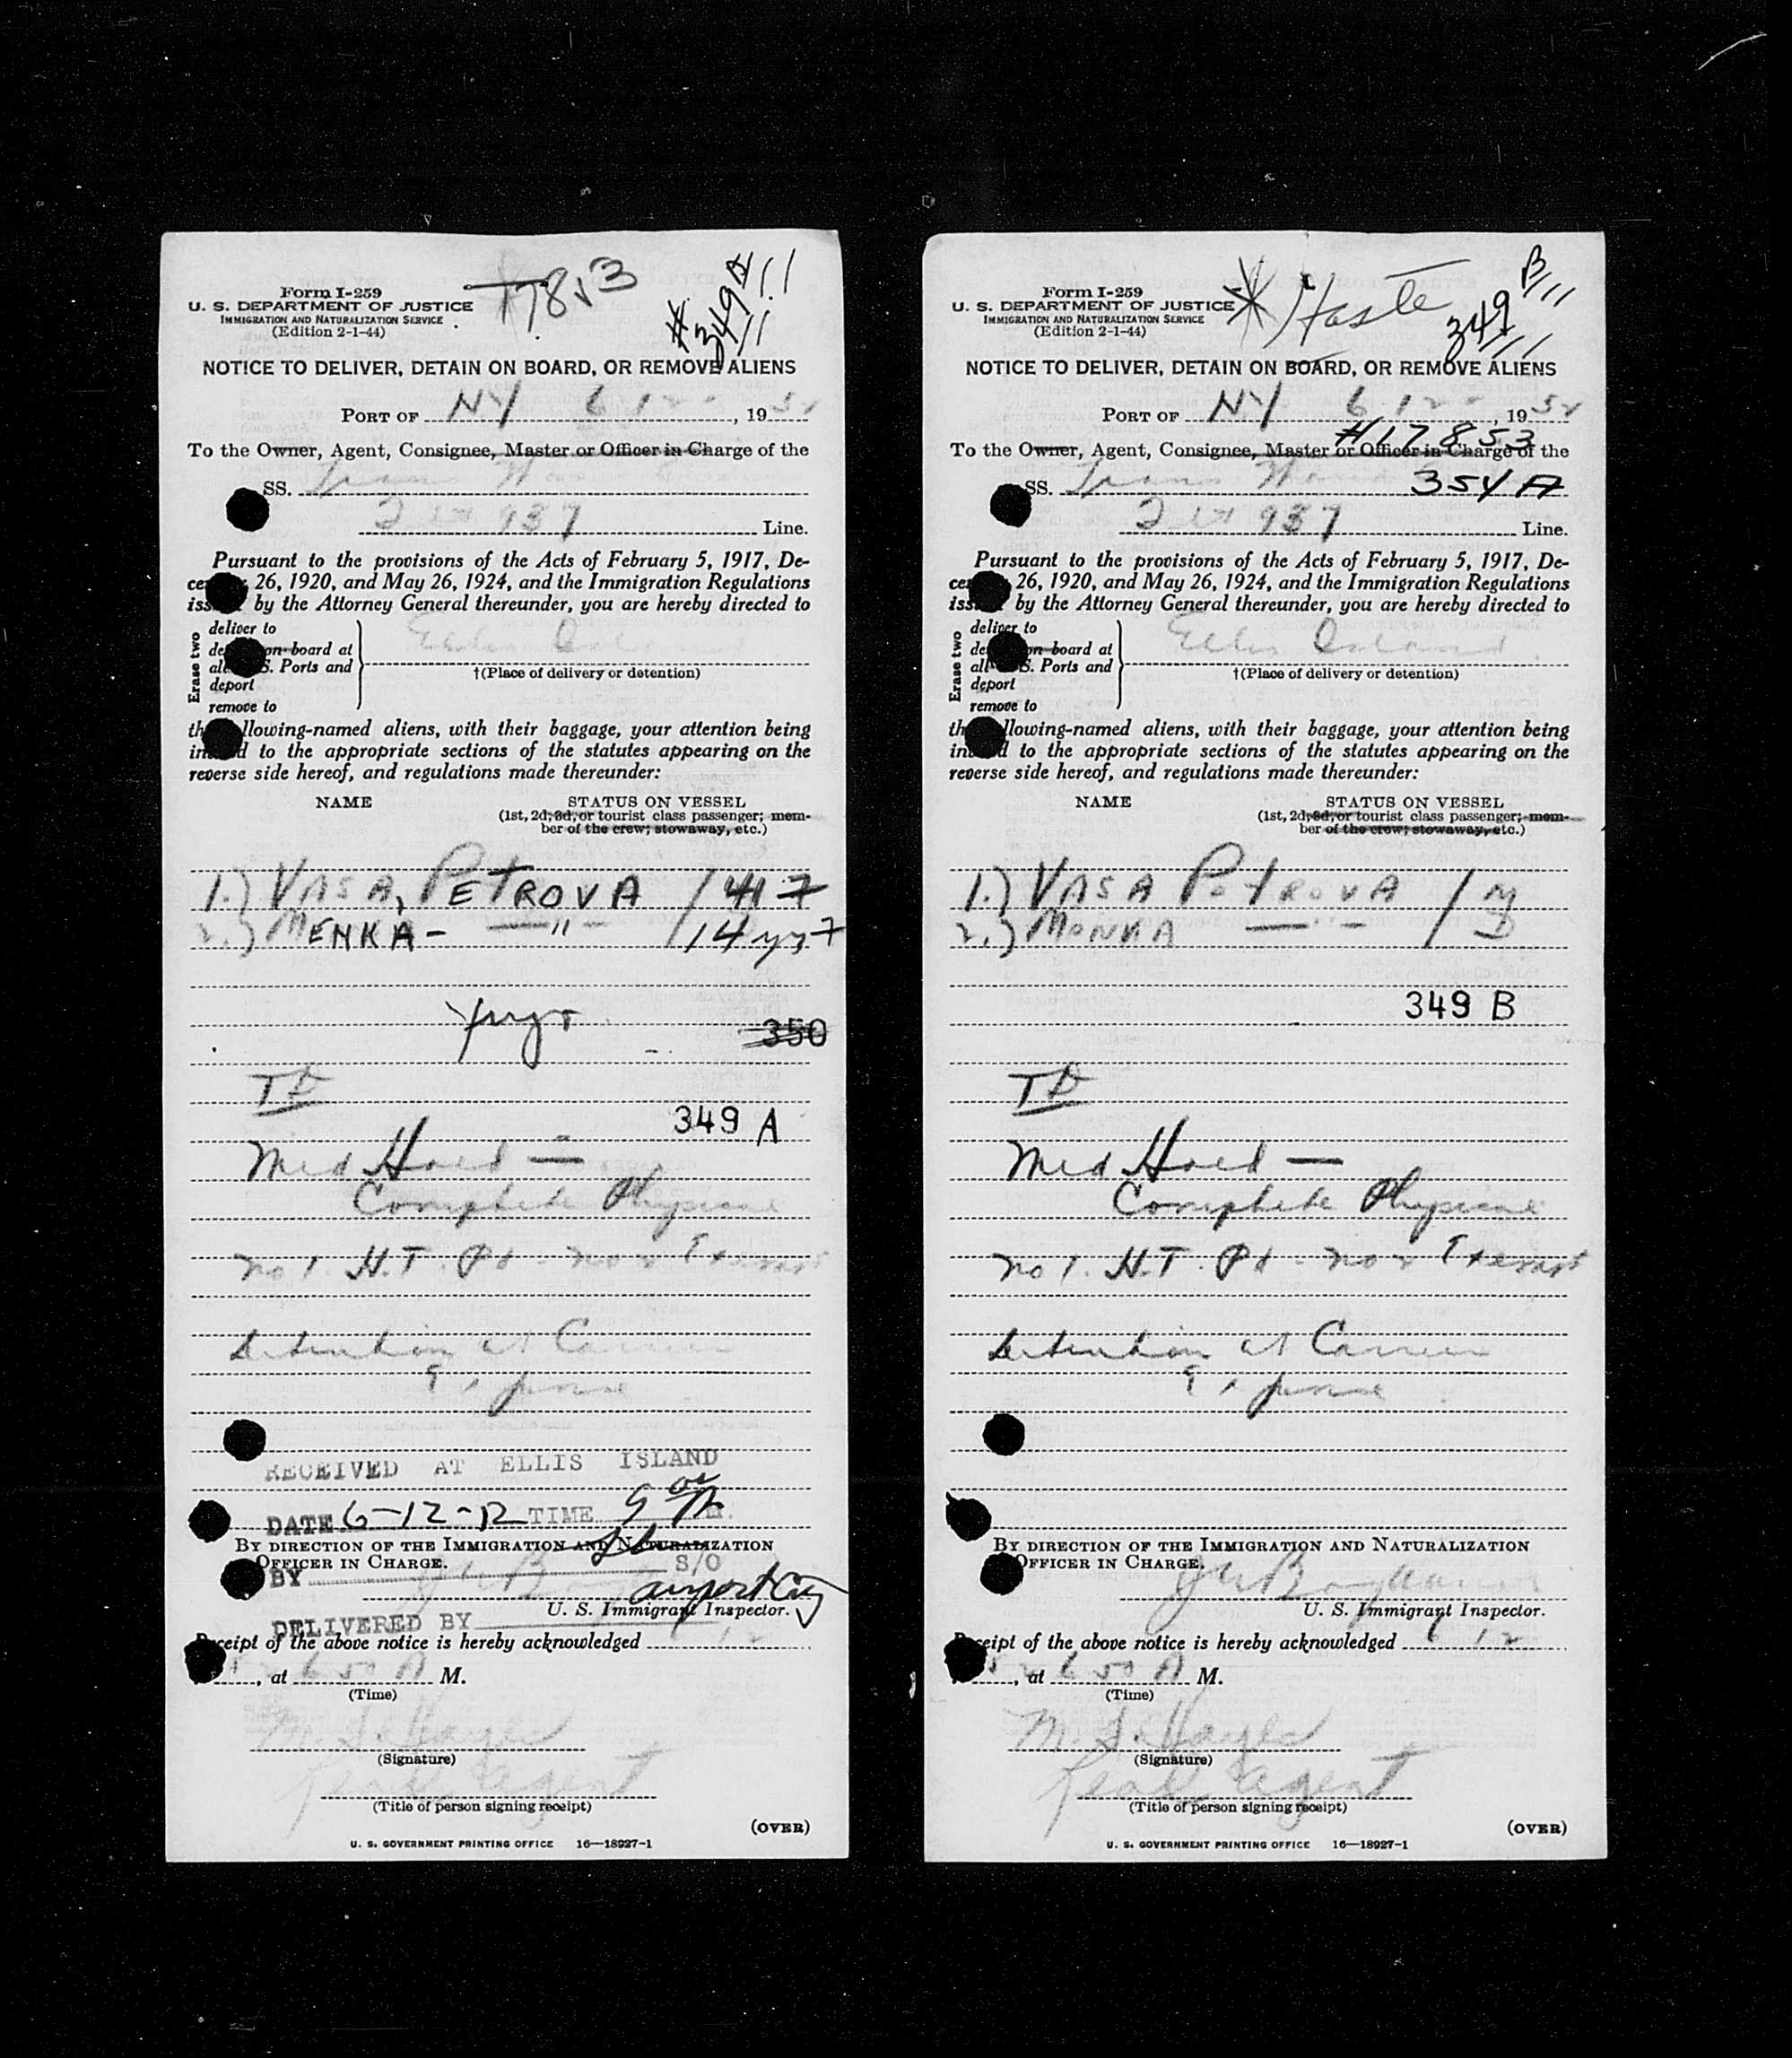 Form I-259
U. S. DEPARTMENT OF JUSTICE
IMMIGRATION AND NATURALIZATION SERVICE
(Edition 2-1-44)
# 349 A
NOTICE TO DELIVER, DETAIN ON BOARD, OR REMOVE ALIENS
PORT OF NY 6 12 , 19 52
To the Owner, Agent, Consignee, Master or Officer in Charge of the
SS. Trans
937 Line.
Pursuant to the provisions of the Acts of February 5, 1917, De-
26, 1920, and May 26, 1924, and the Immigration Regulations
by the Attorney General thereunder, you are hereby directed to
Erase two
deliver to
on board at
S. Ports and
deport
remove to
Ellis
†(Place of delivery or detention)
llowing-named aliens, with their baggage, your attention being
to the appropriate sections of the statutes appearing on the
reverse side hereof, and regulations made thereunder:
NAME STATUS ON VESSEL
(1st, 2d, 3d, or tourist class passenger; mem-
ber of the crew; stowaway, etc.)
1.) VASA, PETROVA / 41 7
2.) MENKA - — " — / 14 yrs 7
350
349 A
Med Hold —
Complete Physical
No 1. H.T. Pt - No 2 Exempt
Detention at Carrier
RECEIVED AT ELLIS ISLAND
DATE 6-12-52 TIME 9
BY DIRECTION OF THE IMMIGRATION AND NATURALIZATION
OFFICER IN CHARGE.
BY S/O
airport
U. S. Immigrant Inspector.
DELIVERED BY
Receipt of the above notice is hereby acknowledged 12
, at 6 50 A M.
(Time)
(Signature)
Agent
(Title of person signing receipt)
(OVER)
U. S. GOVERNMENT PRINTING OFFICE 16—18927-1
Form I-259
U. S. DEPARTMENT OF JUSTICE
IMMIGRATION AND NATURALIZATION SERVICE
(Edition 2-1-44)
Haste
349 B
NOTICE TO DELIVER, DETAIN ON BOARD, OR REMOVE ALIENS
PORT OF NY 6 12 , 19 52
#17853
To the Owner, Agent, Consignee, Master or Officer in Charge of the
SS. Trans 354 A
937 Line.
Pursuant to the provisions of the Acts of February 5, 1917, De-
26, 1920, and May 26, 1924, and the Immigration Regulations
by the Attorney General thereunder, you are hereby directed to
Erase two
deliver to
on board at
S. Ports and
deport
remove to
Ellis Island
†(Place of delivery or detention)
llowing-named aliens, with their baggage, your attention being
to the appropriate sections of the statutes appearing on the
reverse side hereof, and regulations made thereunder:
NAME STATUS ON VESSEL
(1st, 2d, 3d, or tourist class passenger; mem-
ber of the crew; stowaway, etc.)
1.) VASA PETROVA / M
2.) MONKA — " — / D
349 B
Med Hold —
Complete Physical
No 1. H.T. Pt - No 2 Exempt
Detention at Carrier
BY DIRECTION OF THE IMMIGRATION AND NATURALIZATION
OFFICER IN CHARGE.
U. S. Immigrant Inspector.
Receipt of the above notice is hereby acknowledged 6 12
, at 6 50 A M.
(Time)
(Signature)
Agent
(Title of person signing receipt)
(OVER)
U. S. GOVERNMENT PRINTING OFFICE 16—18927-1